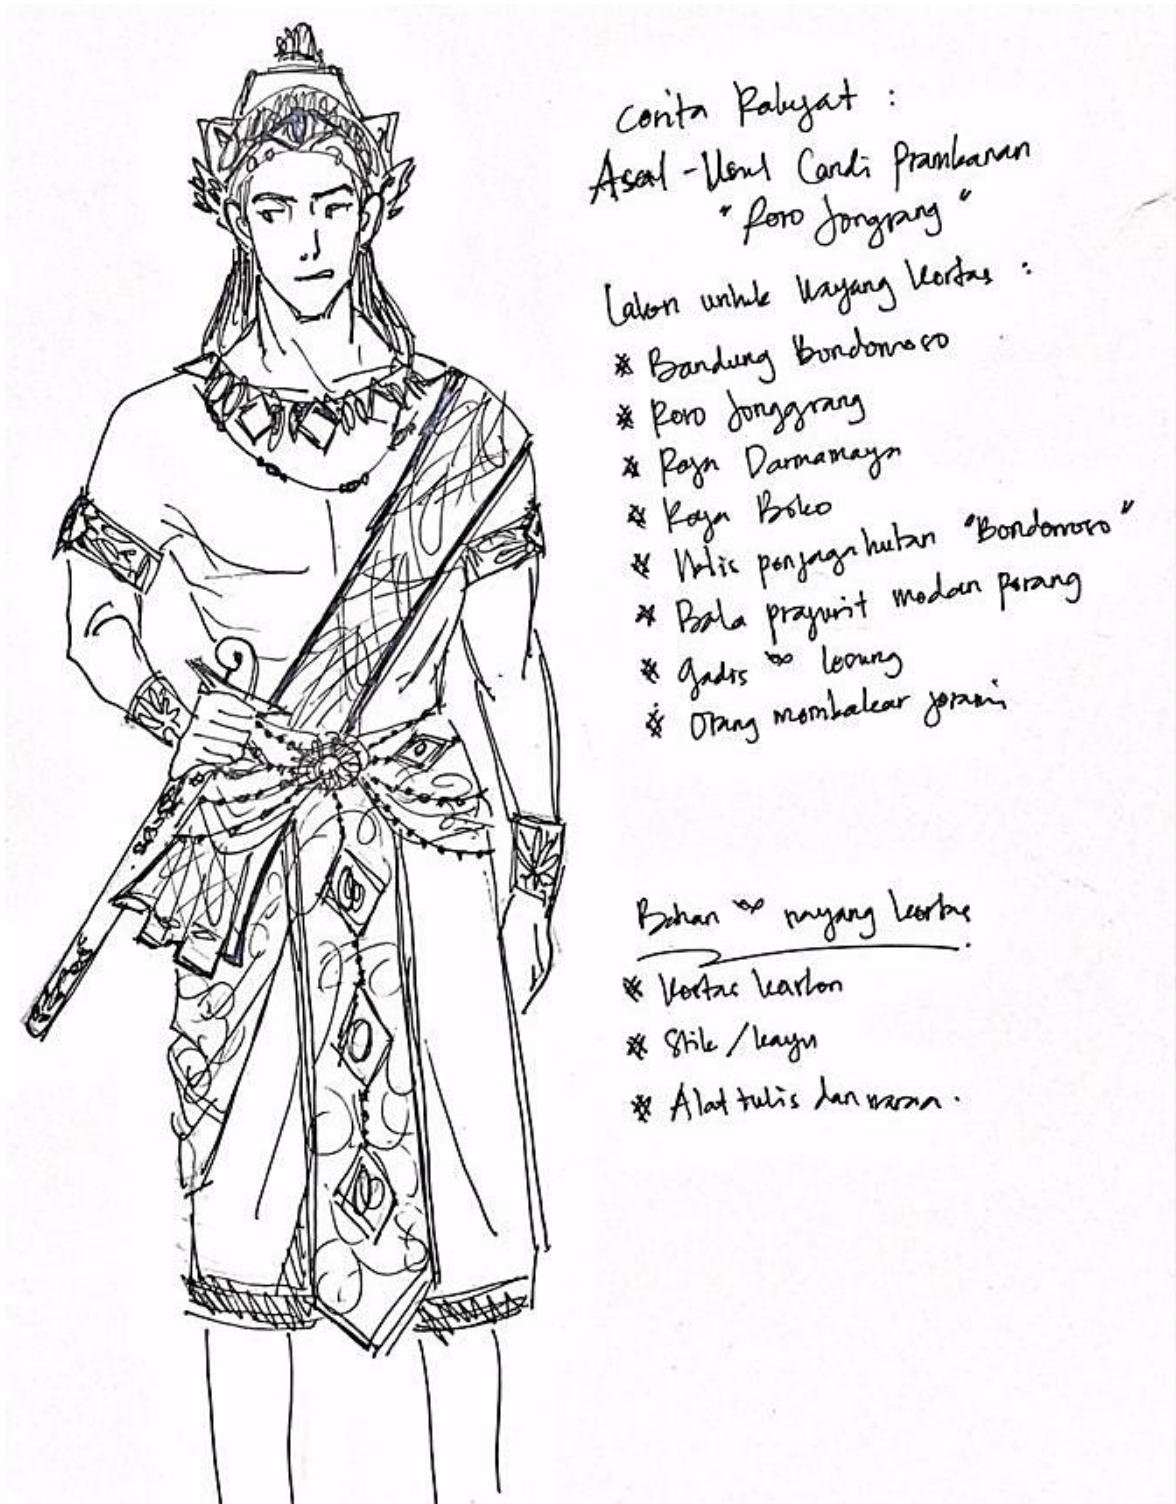 Cerita Rakyat :
Asal-Usul Candi Prambanan
"Roro Jongrang"
Lakon untuk Wayang Kertas :
* Bandung Bondowoso
* Roro Jonggrang
* Raja Darmamaya
* Raja Boko
* Iblis penjaga hutan "Bondowoso"
* Bala prajurit medan perang
* Gadis lesung
* Orang membakar jerami
Bahan wayang kertas
* Kertas karton
* Stik / kayu
* Alat tulis dan warna.